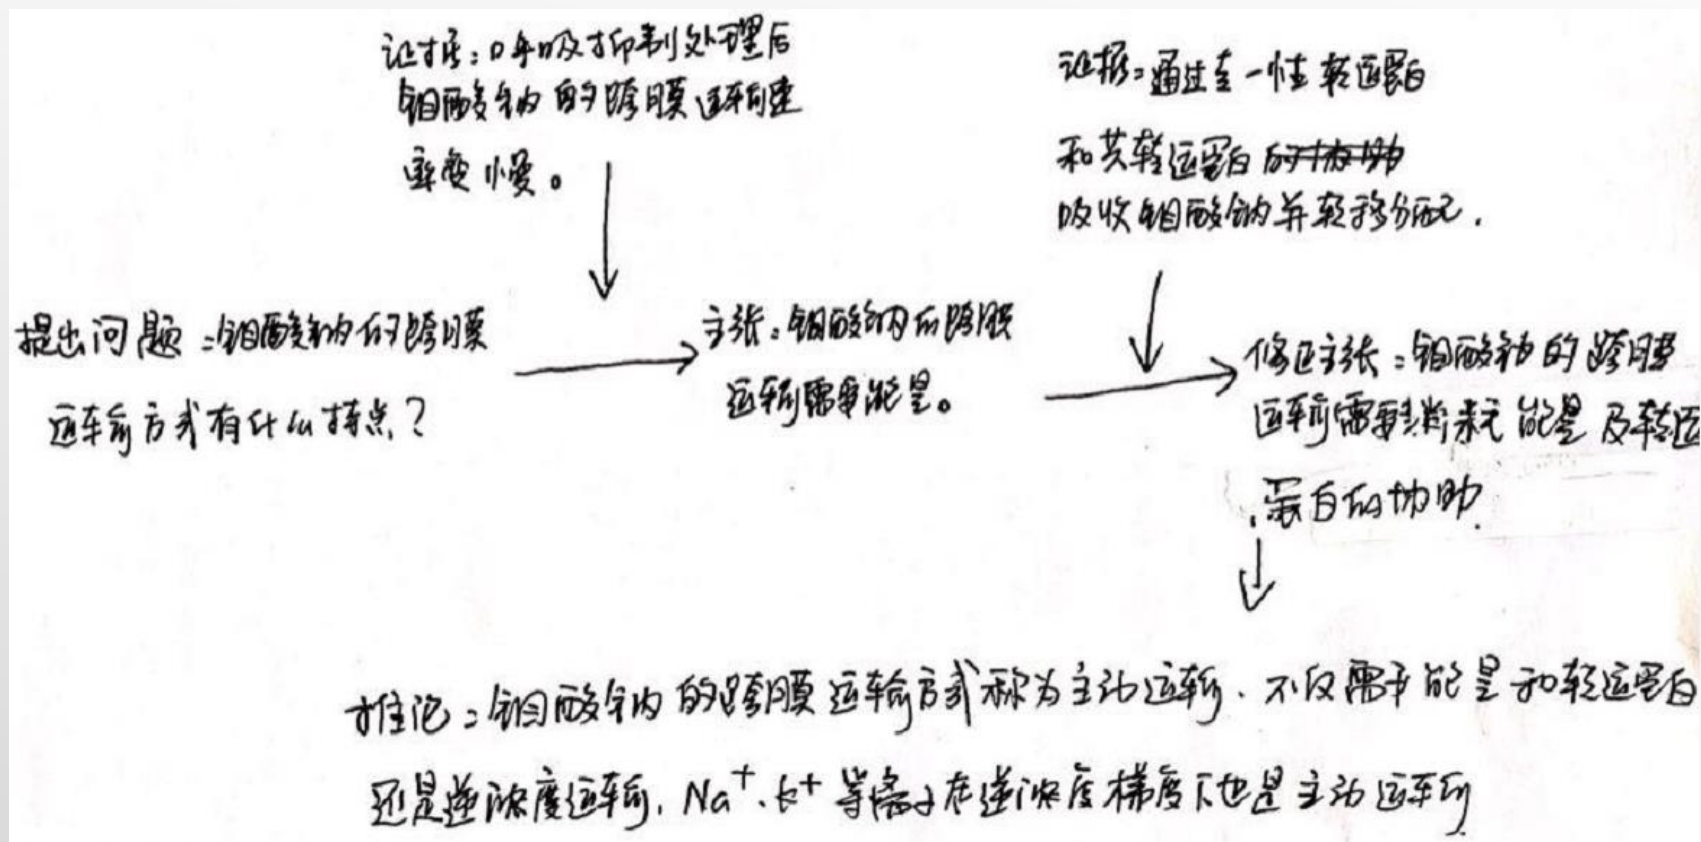 证据：呼吸抑制处理后
钼酸钠的跨膜运输速
率变慢。
证据：通过专一性转运蛋白
和共转运蛋白的协助
吸收钼酸钠并转移分配.
提出问题：钼酸钠的跨膜
运输方式有什么特点？
主张：钼酸钠的跨膜
运输需要能量。
修正主张：钼酸钠的跨膜
运输需要消耗能量及转运
蛋白的协助.
推论：钼酸钠的跨膜运输方式称为主动运输.不仅需要能量和转运蛋白
还是逆浓度运输，Na⁺、k⁺等离子在逆浓度梯度下也是主动运输